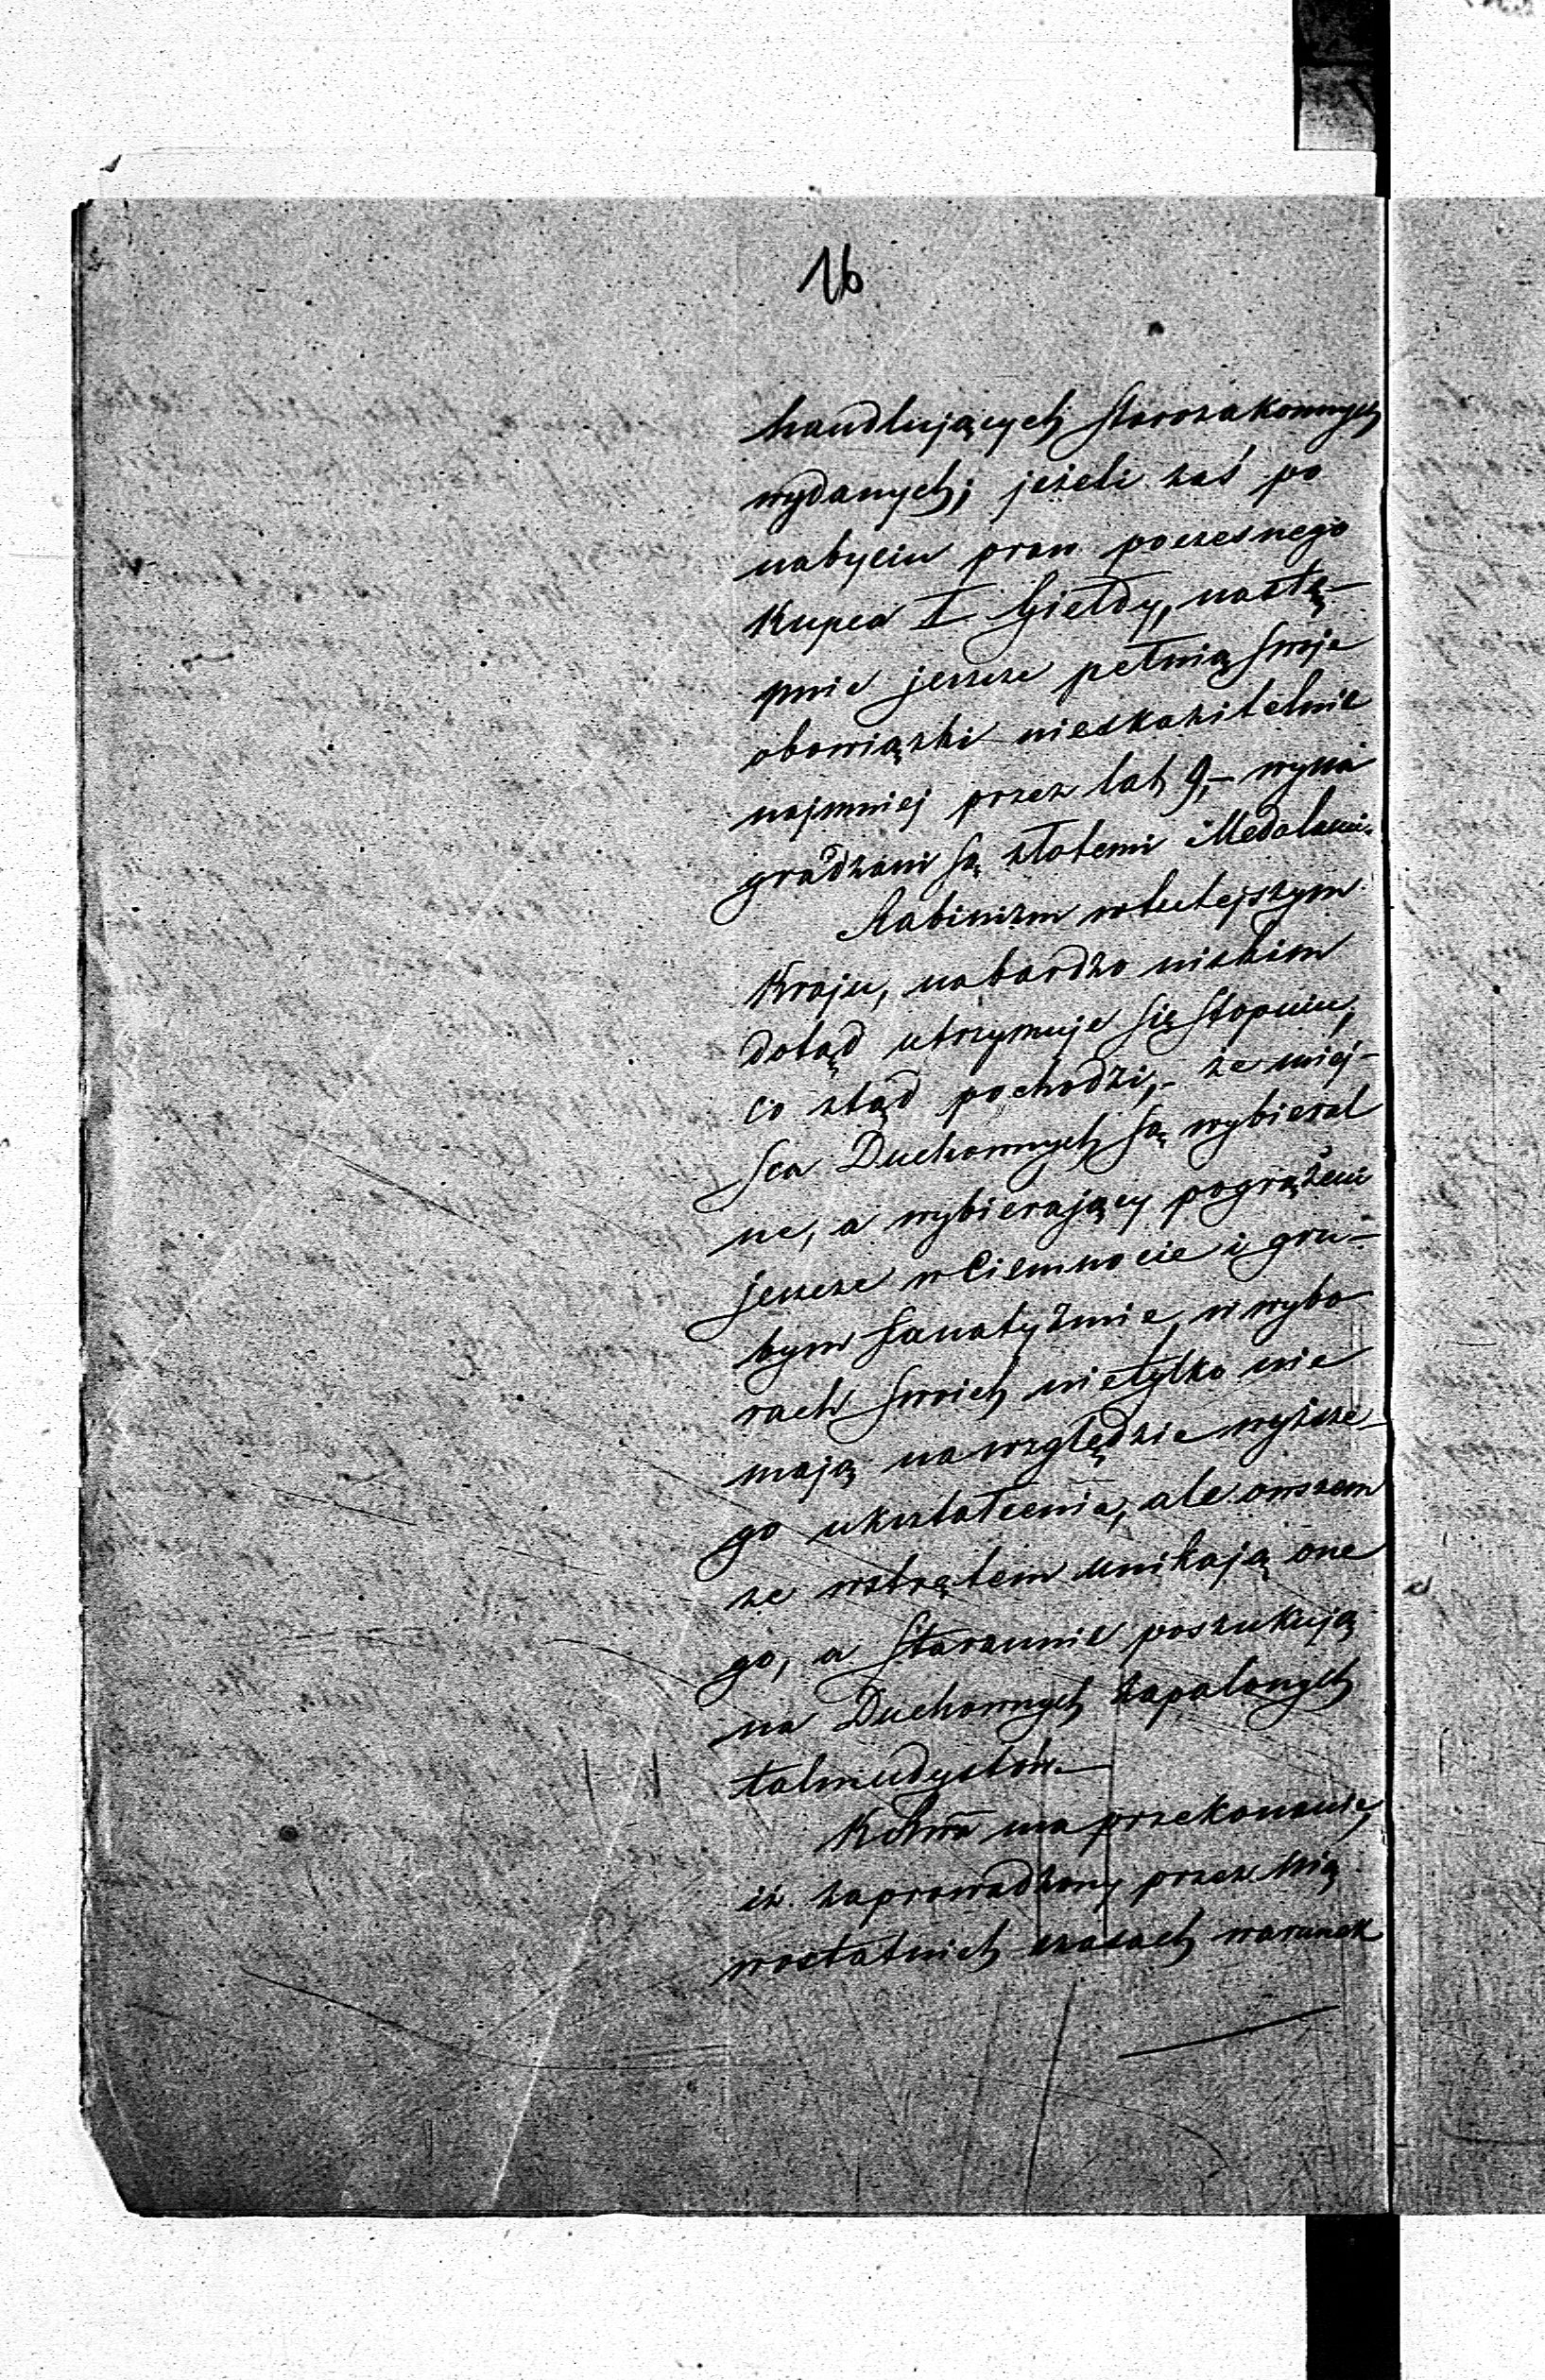 16
handlujących Starozakonnych
wydanych; jeżeli zaś po
nabyciu praw poczesnego
Kupca I Giełdy, nastę-
pnie jeszcze pełnią swoje
obowiązki nieskazitelnie
najmniej przez lat 9,- wyna
gradzani są złotemi Medalami.
Rabinizm w tutejszym
Kraju, na bardzo niskim
dotąd utrzymuje się stopniu,
co ztąd pochodzi,- że miej-
sca Duchownych są wybieral
ne, a wybierający pogrążeni
jeszcze w Ciemnocie i gru-
bym fanatyźmie, w wybo
rach swoich nietylko nie
mają na względzie wyższe-
go ukształcenia, ale owszem
ze wstrętem unikają one
go, a starannie poszukują
na Duchownych zapalonych
talmudystów.—
ma przekonanie,
iż zaprowadzony przez Nią
w ostatnich czasach warunek